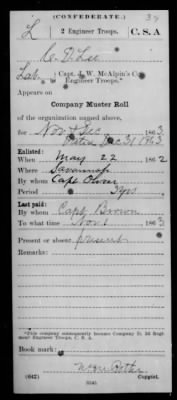 (CONFEDERATE.)
39
L 2 Engineer Troops. C. S. A
C. D. Lee
Capt. J. W. McAlpin's Co.
Engineer Troops.*
Appears on
Company Muster Roll
of the organization named above,
for Nov & Dec 1863.
Dated Dec 31 1863
Enlisted:
When May 22 1862
Where Savannah
By whom Capt Oliver
Period 3 yrs
Last paid:
By whom Capt Brown
To what time Nov 1 1863
Present or absent present
Remarks:
*This company subsequently became Company D, 2d Regiment Engineer Troops, C. S. A.
Book mark:
(642)
Copyist.